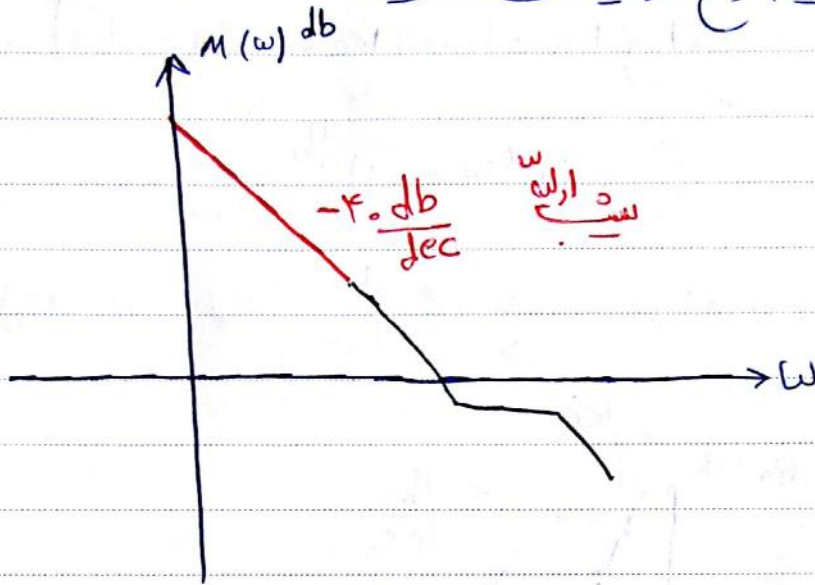 M (ω) db
-۴۰ db
dec
شیب اولیه
ω